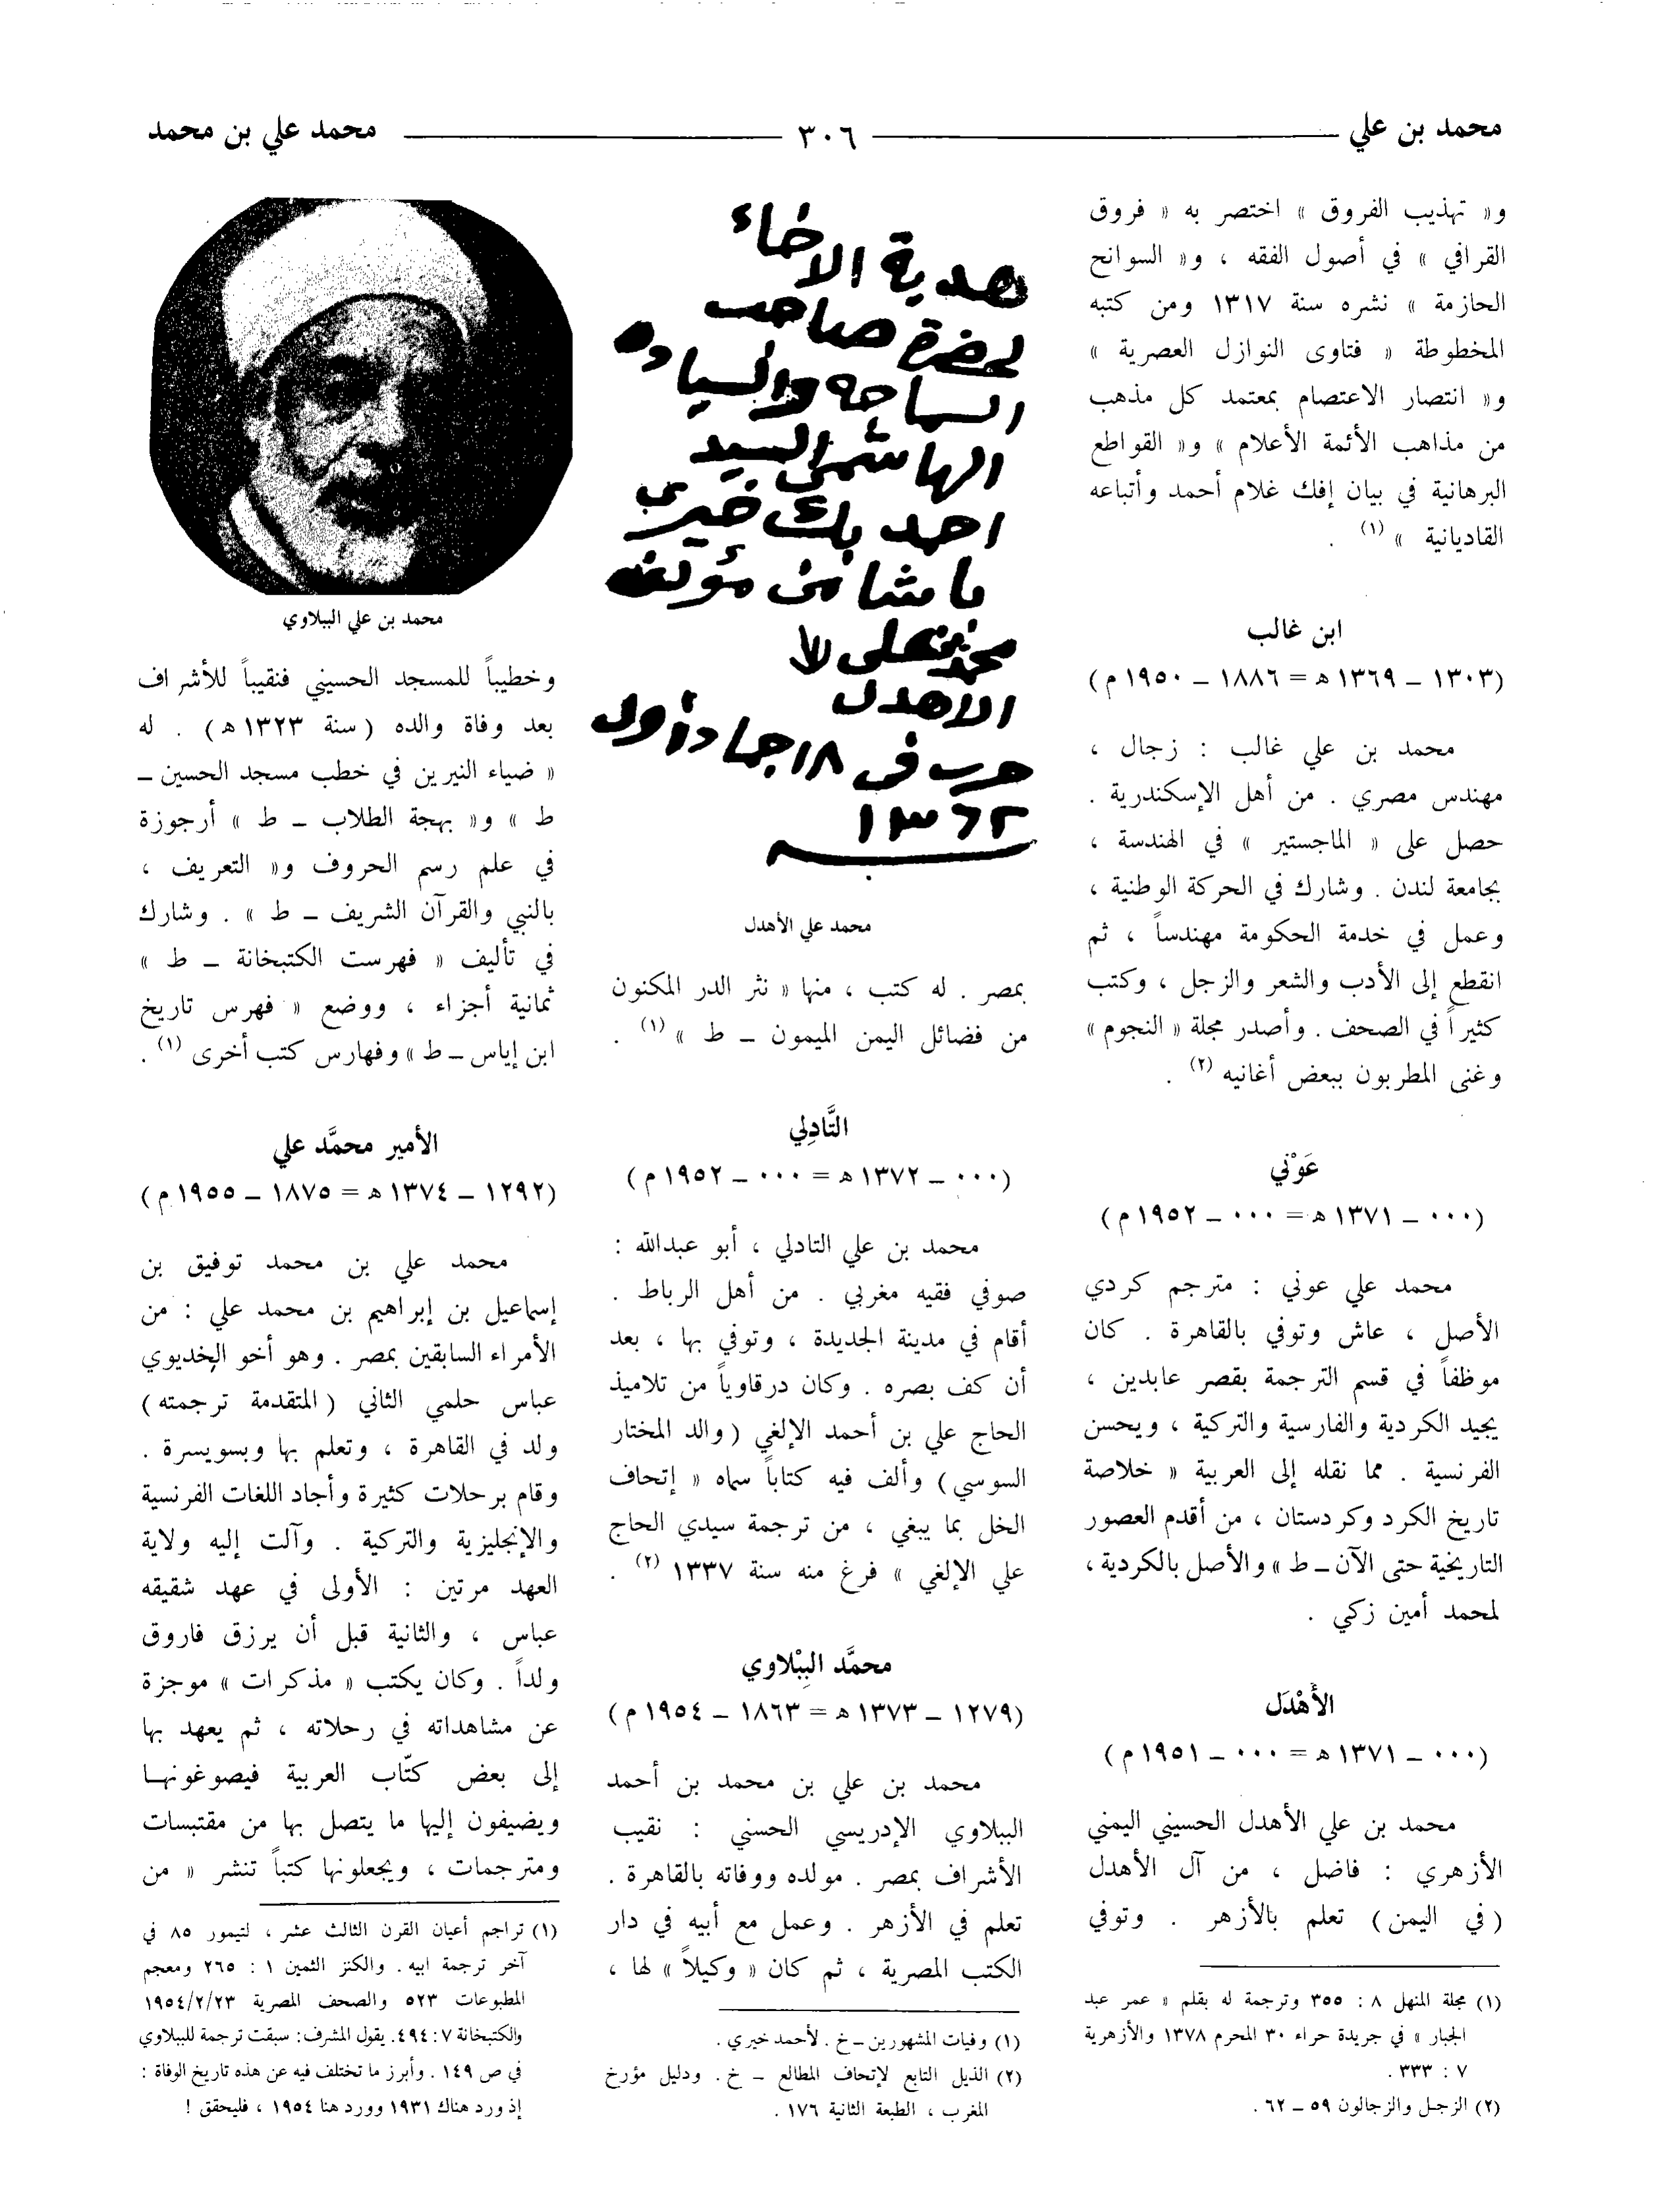 محمد بن علي ٣٠٦ محمد علي بن محمد
و« تهذيب الفروق » اختصر به « فروق
القرافي » في أصول الفقه ، و« السوانح
الحازمة » نشره سنة ١٣١٧ ومن كتبه
المخطوطة « فتاوى النوازل العصرية »
و« انتصار الاعتصام بمعتمد كل مذهب
من مذاهب الأئمة الأعلام » و« القواطع
البرهانية في بيان إفك غلام أحمد وأتباعه
القاديانية » (١) .
ابن غالب
(١٣٠٣ – ١٣٦٩ ه = ١٨٨٦ – ١٩٥٠ م)
محمد بن علي غالب : زجال ،
مهندس مصري . من أهل الإسكندرية .
حصل على « الماجستير » في الهندسة ،
بجامعة لندن . وشارك في الحركة الوطنية ،
وعمل في خدمة الحكومة مهندساً ، ثم
انقطع إلى الأدب والشعر والزجل ، وكتب
كثيراً في الصحف . وأصدر مجلة « النجوم »
وغنى المطربون ببعض أغانيه (٢) .
عَوْني
(٠٠٠ – ١٣٧١ ه = ٠٠٠ – ١٩٥٢ م)
محمد علي عوني : مترجم كردي
الأصل ، عاش وتوفي بالقاهرة . كان
موظفاً في قسم الترجمة بقصر عابدين ،
يجيد الكردية والفارسية والتركية ، ويحسن
الفرنسية . مما نقله إلى العربية « خلاصة
تاريخ الكرد وكردستان ، من أقدم العصور
التاريخية حتى الآن – ط » والأصل بالكردية ،
لمحمد أمين زكي .
الأَهْدَل
(٠٠٠ – ١٣٧١ ه = ٠٠٠ – ١٩٥١ م)
محمد بن علي الأهدل الحسيني اليمني
الأزهري : فاضل ، من آل الأهدل
(في اليمن) تعلم بالأزهر . وتوفي
(١) مجلة المنهل ٨ : ٣٥٥ وترجمة له بقلم « عمر عبد
الجبار » في جريدة حراء ٣٠ المحرم ١٣٧٨ والأزهرية
٧ : ٣٣٣ .
(٢) الزجل والزجالون ٥٩ – ٦٢ .
هدية الاخاء
لحضرة صاحب
السماحة والسيادة
الهاشمى السيد
احمد بك خيرى
الاهدل
١٣٦٢
محمد علي الأهدل
بمصر . له كتب ، منها « نثر الدر المكنون
من فضائل اليمن الميمون – ط » (١) .
التَّادِلي
(٠٠٠ – ١٣٧٢ ه = ٠٠٠ – ١٩٥٢ م)
محمد بن علي التادلي ، أبو عبدالله :
صوفي فقيه مغربي . من أهل الرباط .
أقام في مدينة الجديدة ، وتوفي بها ، بعد
أن كف بصره . وكان درقاوياً من تلاميذ
الحاج علي بن أحمد الإلغي (والد المختار
السوسي) وألف فيه كتاباً سماه « إتحاف
الخل بما يبغي ، من ترجمة سيدي الحاج
علي الإلغي » فرغ منه سنة ١٣٣٧ (٢) .
محمَّد البِبْلاوي
(١٢٧٩ – ١٣٧٣ ه = ١٨٦٣ – ١٩٥٤ م)
محمد بن علي بن محمد بن أحمد
الببلاوي الإدريسي الحسني : نقيب
الأشراف بمصر . مولده ووفاته بالقاهرة .
تعلم في الأزهر . وعمل مع أبيه في دار
الكتب المصرية ، ثم كان « وكيلاً » لها ،
(١) وفيات المشهورين – خ . لأحمد خيري .
(٢) الذيل التابع لإتحاف المطالع – خ . ودليل مؤرخ
المغرب ، الطبعة الثانية ١٧٦ .
محمد بن علي الببلاوي
وخطيباً للمسجد الحسيني فنقيباً للأشراف
بعد وفاة والده (سنة ١٣٢٣ ه) . له
« ضياء النيرين في خطب مسجد الحسين –
ط » و« بهجة الطلاب – ط » أرجوزة
في علم رسم الحروف و« التعريف ،
بالنبي والقرآن الشريف – ط » . وشارك
في تأليف « فهرست الكتبخانة – ط »
ثمانية أجزاء ، ووضع « فهرس تاريخ
ابن إياس – ط » وفهارس كتب أخرى (١) .
الأمير محمَّد علي
(١٢٩٢ – ١٣٧٤ ه = ١٨٧٥ – ١٩٥٥ م)
محمد علي بن محمد توفيق بن
إسماعيل بن إبراهيم بن محمد علي : من
الأمراء السابقين بمصر . وهو أخو الخديوي
عباس حلمي الثاني (المتقدمة ترجمته)
ولد في القاهرة ، وتعلم بها وبسويسرة .
وقام برحلات كثيرة وأجاد اللغات الفرنسية
والإنجليزية والتركية . وآلت إليه ولاية
العهد مرتين : الأولى في عهد شقيقه
عباس ، والثانية قبل أن يرزق فاروق
ولداً . وكان يكتب « مذكرات » موجزة
عن مشاهداته في رحلاته ، ثم يعهد بها
إلى بعض كتّاب العربية فيصوغونها
ويضيفون إليها ما يتصل بها من مقتبسات
ومترجمات ، ويجعلونها كتباً تنشر « من
(١) تراجم أعيان القرن الثالث عشر ، لتيمور ٨٥ في
آخر ترجمة ابيه . والكنز الثمين ١ : ٢٦٥ ومعجم
المطبوعات ٥٢٣ والصحف المصرية ١٩٥٤/٢/٢٣
والكتبخانة ٧ : ٤٩٤. يقول المشرف : سبقت ترجمة للببلاوي
في ص ١٤٩ . وأبرز ما تختلف فيه عن هذه تاريخ الوفاة :
إذ ورد هناك ١٩٣١ وورد هنا ١٩٥٤ ، فليحقق !